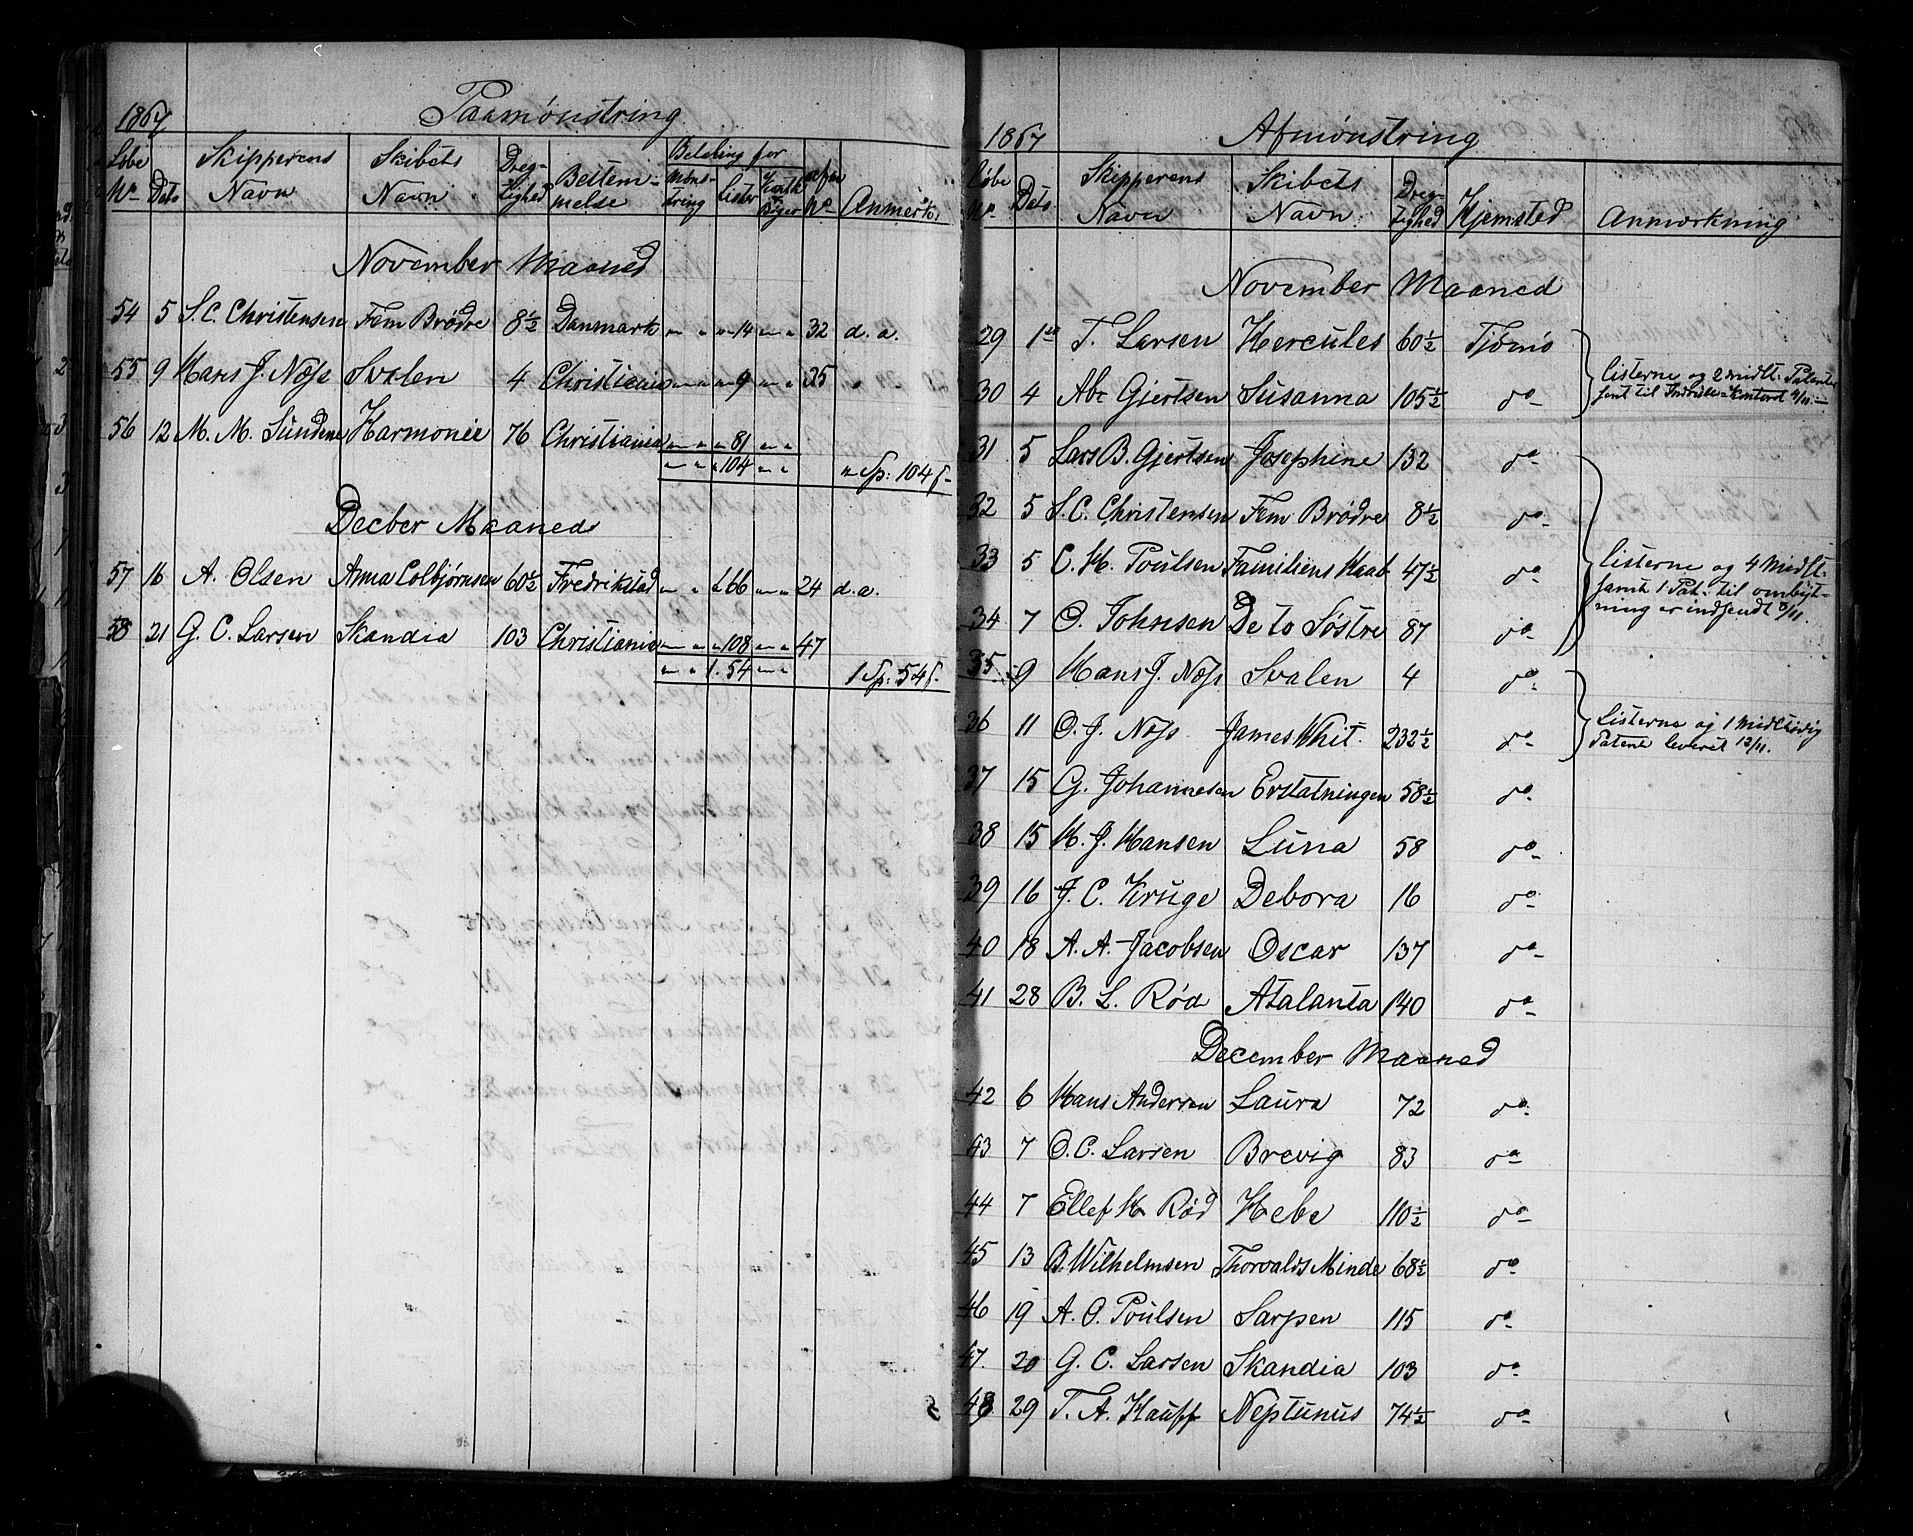 1867 Paamönstring
Löbe No Dato Skipperens Navn Skibets Navn Dræg-tighed Bestem-melse Betaling for Mönst-ring Lister No Anmærk:
November Maaned
54 5 S. C. Christensen Fem Brödre 8½ Danmark " " " 14 " " 32 d. a.
55 9 Hans J. Næss Svalen 4 Christiania " " " 9 " " 35 "
56 12 M. M. Sundene Harmonie 76 Christiania " " " 81 " "
" " " 104 " " " Sp: 104 ſ-
Decber Maaned
57 16 A. Olsen Anna Colbjørnsen 60½ Fredrikstad " " " 66 " " 24 d. a.
58 21 G. C. Larsen Skandia 103 Christiania " " " 108 " " 47
" " 1. 54 " " 1 Sp: 54 ſ.
1867 Afmönstring
Löbe No Dato Skipperens Navn Skibets Navn Dræg-tighed Hjemsted Anmærkning
November Maaned
29 1 T. Larsen Hercules 60½ Tjömö
30 4 Abr Gjertsen Susanna 105½ do Listerne og 2 midlt. Patenter
samt til Indrulle-Kontoret
31 5 Lars B. Gjertsen Josephine 132 do
32 5 S. C. Christensen Fem Brödre 8½ do
33 5 C. H. Poulsen Familiens Haab 47½ do Listerne og 4 Midlt.
samt 1 Pat: til ombyt-
ning er indsendt 8/11.
34 7 O. Johnsen De to Söstre 87 do
35 9 Hans J. Næss Svalen 4 do
36 11 O. J. Næss James Whit. 232½ do Listerne og 1 Midltidig
Patent leveret 12/11.
37 15 G. Johannesen Erstatningen 58½ do
38 15 H. J. Hansen Luna 58 do
39 16 J. C. Kruge Debora 16 do
40 18 A. A. Jacobsen Oscar 137 do
41 28 B. L. Röd Atalanta 140 do
December Maaned
42 6 Hans Andersen Laura 72 do
43 7 O. C. Larsen Brevig 83 do
44 7 Ellef H Röd Hebe 110½ do
45 13 B. Wilhelmsen Thorvalds Minde 68½ do
46 19 A. O. Poulsen Sarpen 115 do
47. 20 G. C. Larsen Skandia 103 do
48 29 T. A. Hauff Neptunus 74½ do